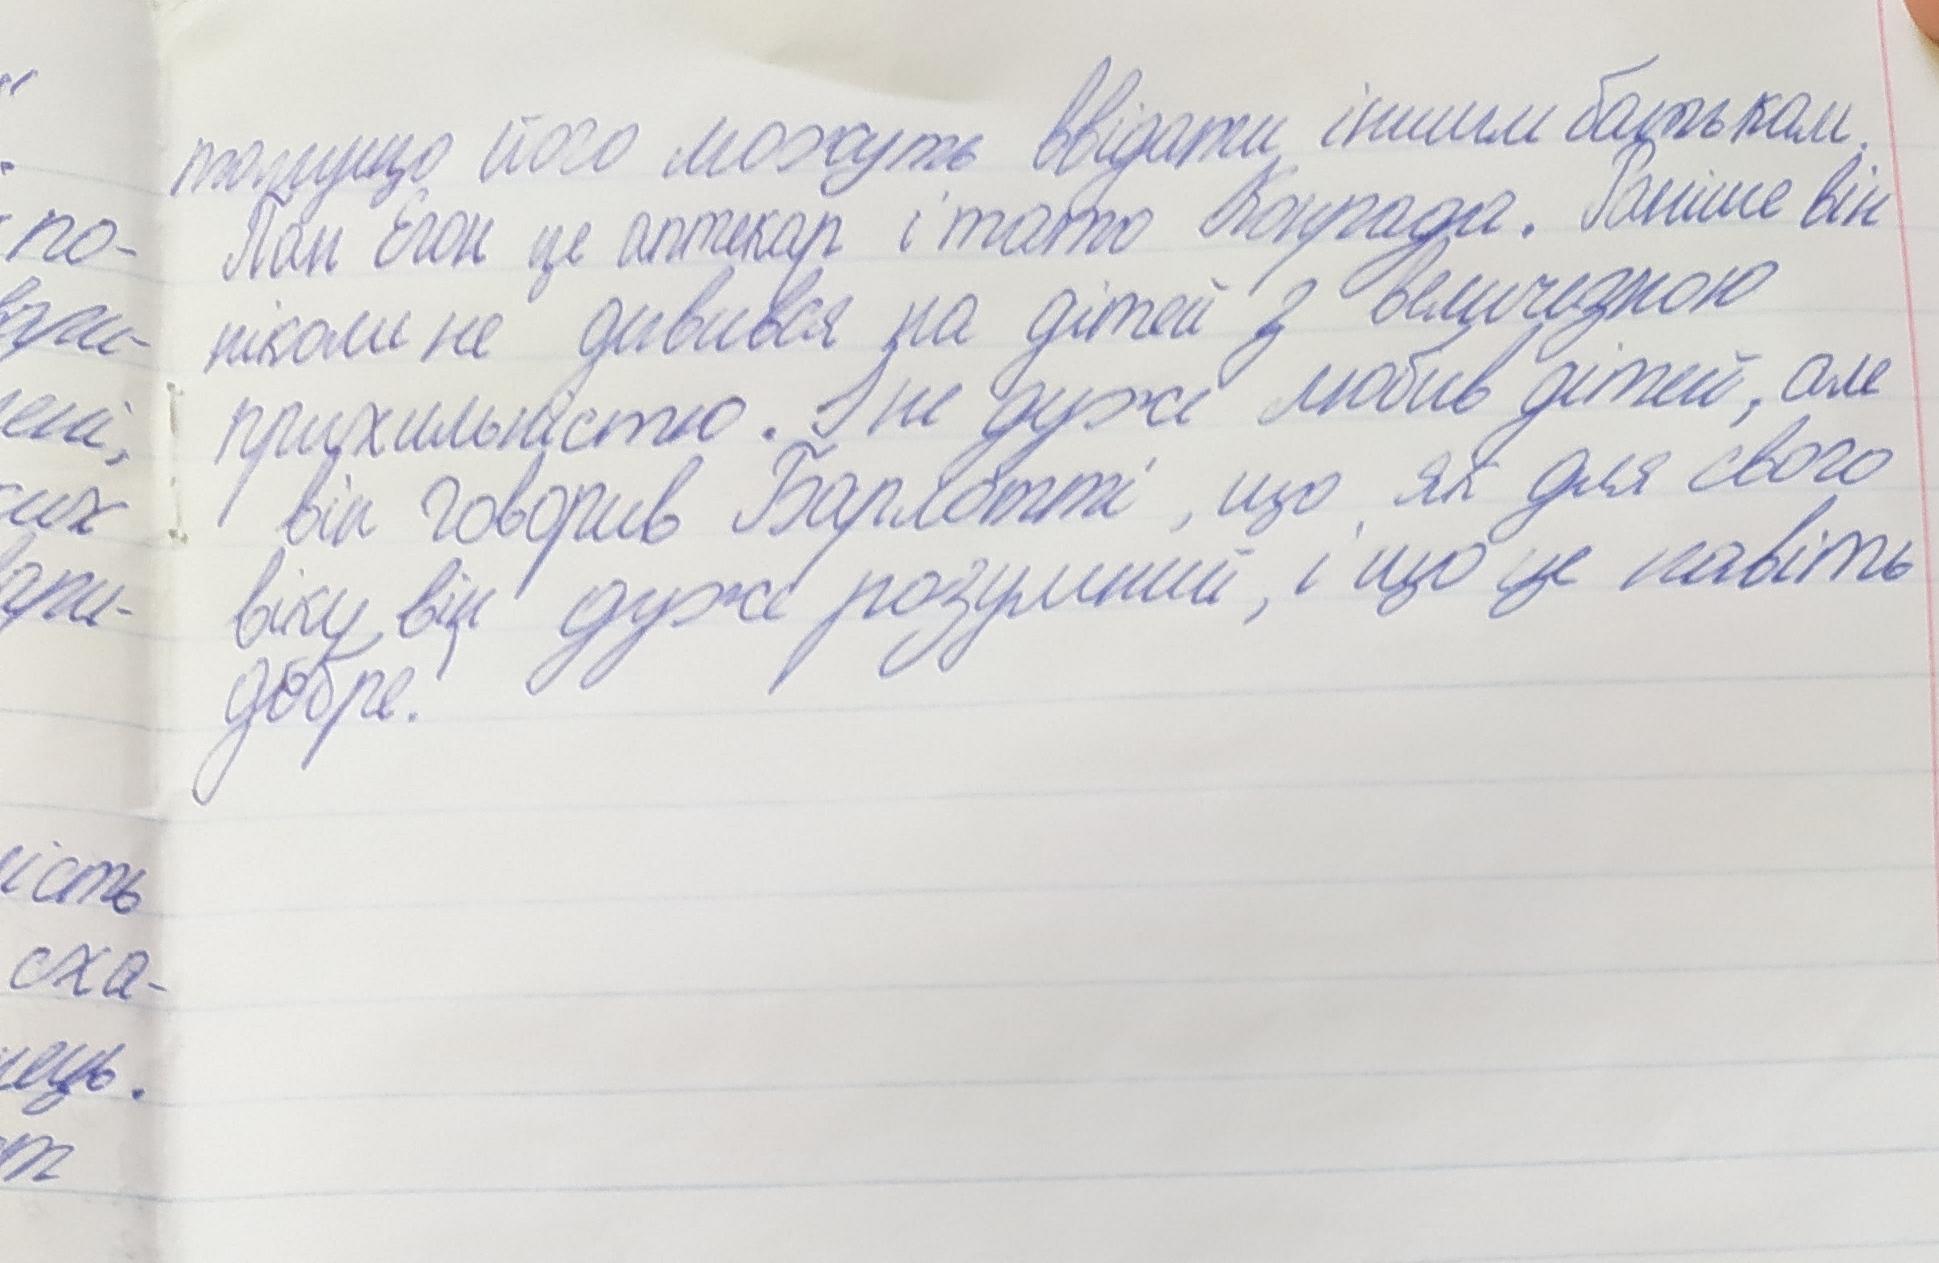 "
тамущо його можуть ввідати іншим батькам.
по-
Пан Егон це аптекар і тато Конрада. Раніше він
вари-
ніколи не дивився на дітей з величезною
лені,
прихильністю. І не дуже любив дітей, але
ких
він говорив Барлотті, що, як для свого
вари-
віку, він дуже розумний, і що це навіть
добре.
ність
сха-
нець.
т